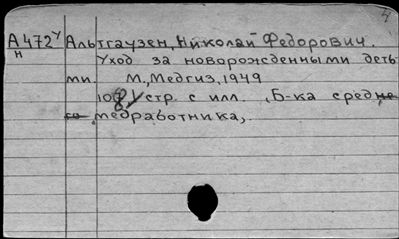 4
А472у Альтгаузен, Николай Федорович.
н Уход за новорожденными деть
ми. М., Медгиз, 1949
стр. с илл. , Б-ка средне
го медработника,.